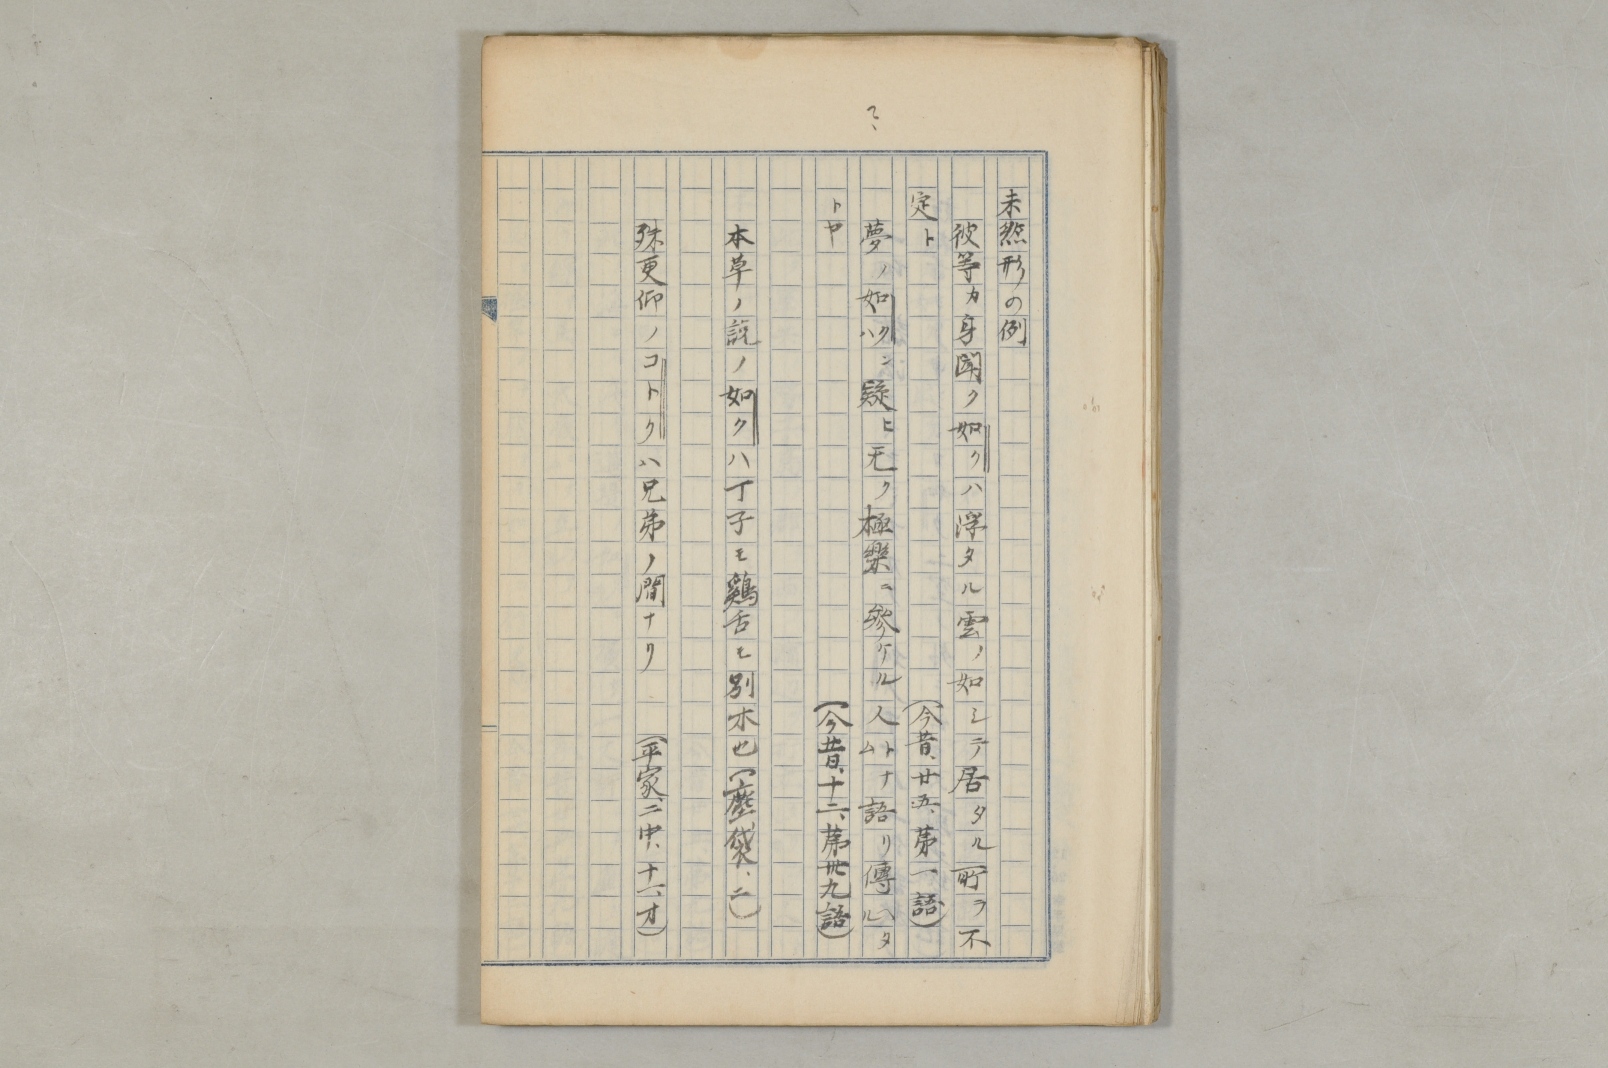 未然形の例
彼等カ身聞ク如クハ浮タル雲ノ如シテ居タル所ラ不
定ト（今昔、廿五、第一語）
夢ノ如クハ疑ヒ无ク極樂ニ參ケル人トナム語リ傳ヘタル
トヤ（今昔、十二、第卅九語）
本草ノ説ノ如クハ丁子モ鷄舌モ別木也（塵袋、二）
殊更仰ノコトクハ兄弟ノ間ナリ（平家、二中、十一、オ）